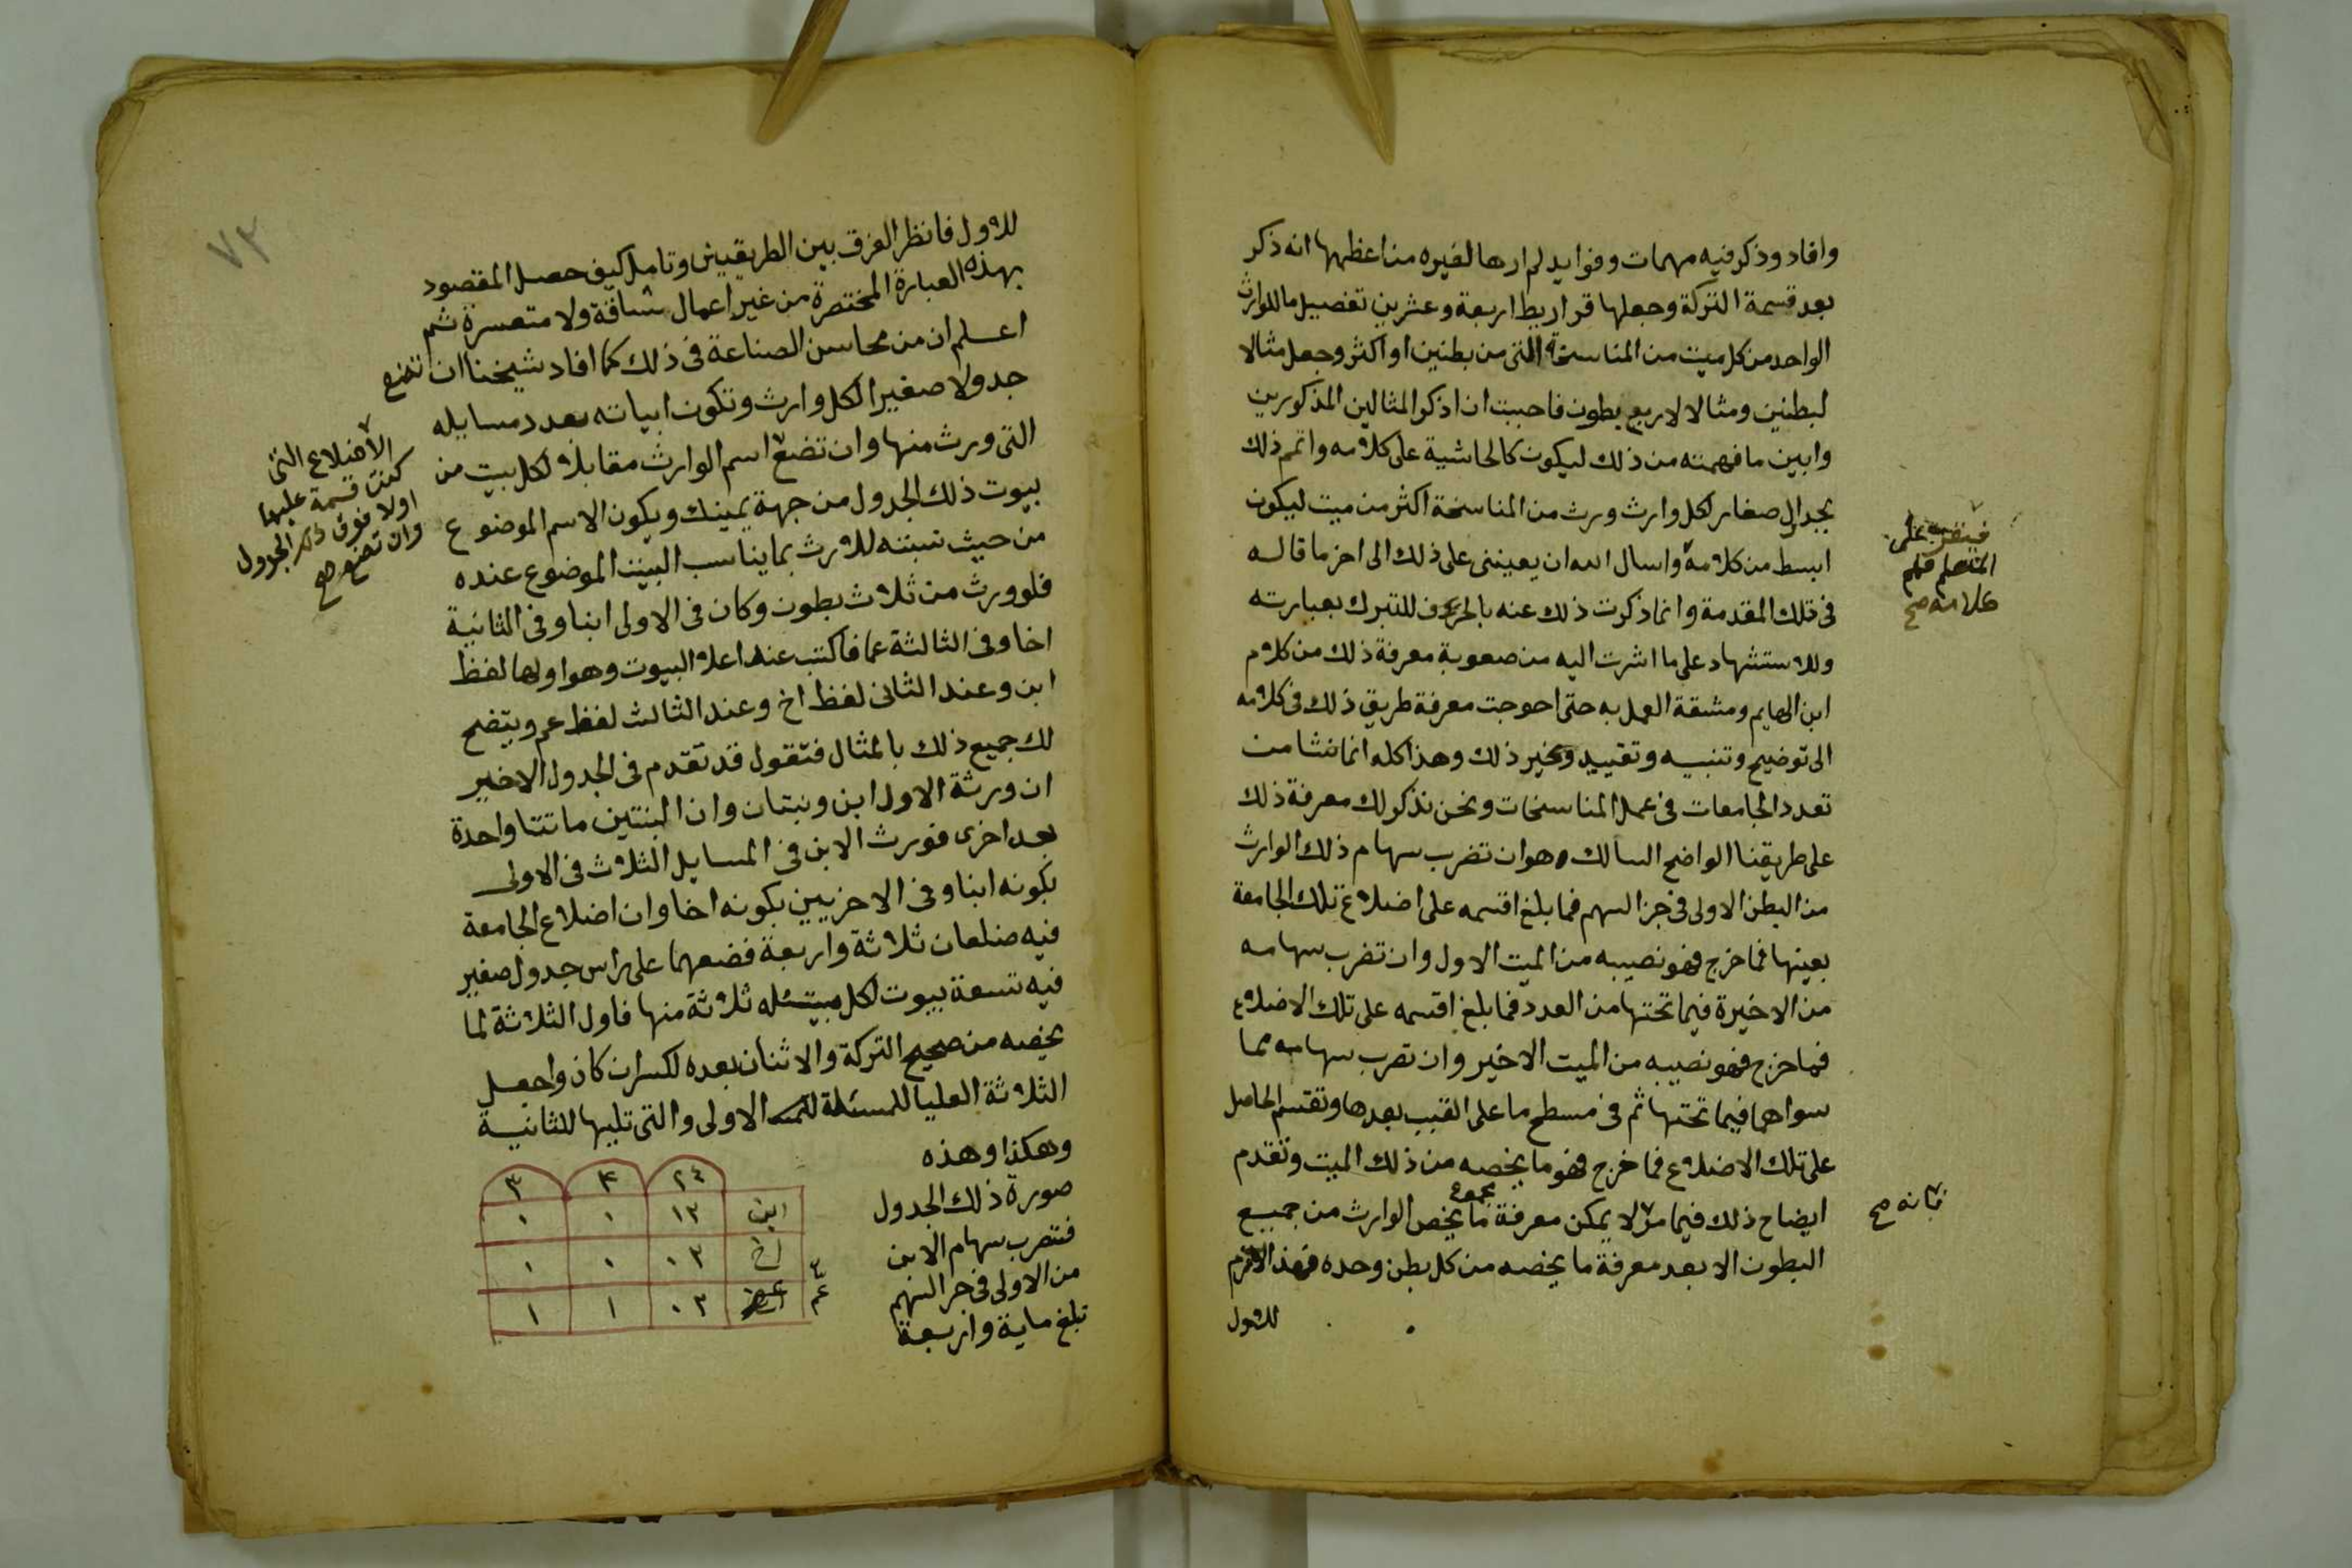 وافاد وذكر فيه مهمات وفوايد لم ارها لغيره من اعظمها انه ذكر
بعد قسمة التركة وجعلها قراريط اربعة وعشرين تفصيل ما للوارث
الواحد من كل ميت من المناسخة التى من بطنين او اكثر وجعل مثالا
لبطنين ومثالا لاربع بطون فاحببت ان اذكر المثالين المذكورين
وابين ما فهمته من ذلك ليكون كالحاشية على كلامه واتمم ذلك
بجداول صغار لكل وارث ورث من المناسخة اكثر من ميت ليكون
ابسط من كلامه واسال الله ان يعيننى على ذلك الى اخر ما قاله
فى تلك المقدمة وانما ذكرت ذلك عنه بالحرف للتبرك بعبارته
وللاستشهاد على ما اشرت اليه من صعوبة معرفة ذلك من كلام
ابن الهايم ومشقة العمل به حتى احوجت معرفة طريق ذلك فى كلامه
الى توضيح وتنبيه وتقييد وغير ذلك وهذا كله انما نشا من
تعدد الجامعات فى عمل المناسخات ونحن نذكر لك معرفة ذلك
على طريقنا الواضح السالك وهو ان تضرب سهام ذلك الوارث
من البطن الاولى فى جز السهم فما بلغ اقسمه على اضلاع تلك الجامعة
بعينها فما خرج فهو نصيبه من الميت الاول وان تضرب سهامه
من الاخيرة فيما تحتها من العدد فما بلغ اقسمه على تلك الاضلاع
فما خرج فهو نصيبه من الميت الاخير وان تضرب سهامه مما
سواهما فيما تحتها ثم فى مسطح ما على القبب بعدها وتقسم الحاصل
على تلك الاضلاع فما خرج فهو ما يخصه من ذلك الميت وتقدم
ايضاح ذلك فيما مر لا يمكن معرفة مجموع ما يخص الوارث من جميع
البطون الا بعد معرفة ما يخصه من كل بطن وحده فهذا لازم
للاول
فيتقرب على
المتعلم فهم
كلامه صح
فانه صح
٧٣
للاول فانظر الفرق بين الطريقين وتامل كيف حصل المقصود
بهذه العبارة المختصرة من غير اعمال شاقة ولا متعسرة ثم
اعلم ان من محاسن الصناعة فى ذلك كما افاد شيخنا ان تضع
جدولا صغيرا لكل وارث وتكون ابياته بعدد مسايله
التى ورث منها وان تضع اسم الوارث مقابلا لكل بيت من
بيوت ذلك الجدول من جهة يمينك ويكون الاسم الموضوع
من حيث نسبته للارث بما يناسب البيت الموضوع عنده
فلو ورث من ثلاث بطون وكان فى الاولى ابنا وفى الثانية
اخا وفى الثالثة عما فاكتب عند اعلا البيوت وهو اولها لفظ
ابن وعند الثانى لفظ اخ وعند الثالث لفظ عم ويتضح
لك جميع ذلك بالمثال فتقول قد تقدم فى الجدول الاخير
ان ورثة الاول ابن وبنتان وان البنتين ماتتا واحدة
بعد اخرى فورث الابن فى المسايل الثلاث فى الاولى
بكونه ابنا وفى الاخريين بكونه اخا وان اضلاع الجامعة
فيه ضلعان ثلاثة واربعة فضعهما على راس جدول صغير
فيه تسعة بيوت لكل مسئله ثلاثة منها فاول الثلاثة لما
يخصه من صحيح التركة والاثنان بعده لكسر ان كان واجعل
الثلاثة العليا للمسئلة الاولى والتى تليها للثانية
وهكذا وهذه
صورة ذلك الجدول
فتضرب سهام الابن
من الاولى فى جز السهم
تبلغ ماية واربعة
الاضلاع التى
كنت قسمة عليها
اولا فوق ذلك الجدول
وان تضع صح
٢٤ ٤ ٣
ابن ١٢ ٠ ٠
اخ ٠٣ ٠ ١
٠٣ ١ ١
عم